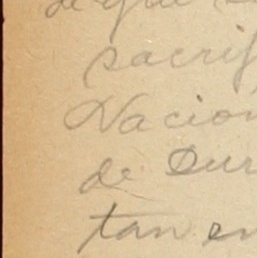 de que s
sacrif
Nacion
de Dur
tan en